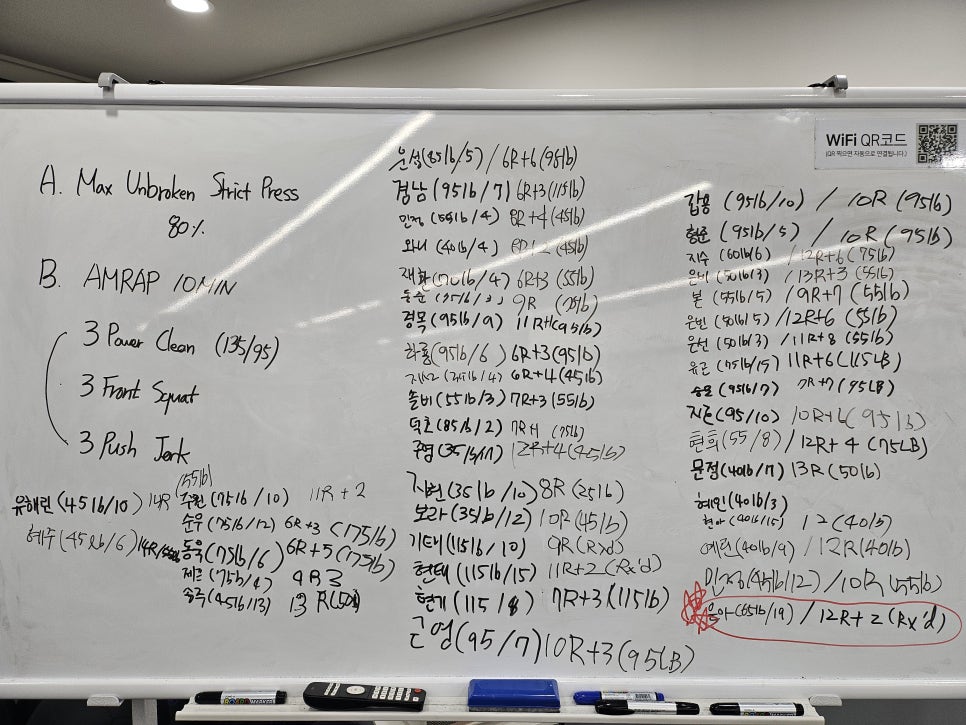 A. Max Unbroken Strict Press
80%
B. AMRAP 10MIN
3 Power Clean (135/95)
3 Front Squat
3 Push Jerk
유해린 (45lb/10) 14R (55lb)
혜주 (45lb/6) 14R
주원 (75lb/10) 11R+2
수우 (75lb/12) 6R+3 (75lb)
동욱 (75lb/6) 6R+5 (75lb)
제프 (75lb/4) 9R 3
송주 (45lb/13) 13R
은성 (85lb/5) / 6R+6 (95lb)
경남 (95lb/7) 6R+3 (115lb)
민정 (55lb/4) 8R+4 (45lb)
와니 (40lb/4) (45lb)
재환 (70lb/4) 6R+3 (55lb)
9R
경목 (95lb/9) 11R+1 (95lb)
하룡 (95lb/6) 6R+3 (95lb)
6R+4 (45lb)
솔비 (55lb/3) 7R+3 (55lb)
덕호 (85lb/2) 7R+1 (75lb)
주명 12R+4 (45lb)
지현 (35lb/10) 8R (25lb)
보라 (35lb/12) 10R (45lb)
기태 (115lb/10) 9R (Rxd)
현태 (115lb/15) 11R+2 (Rx'd)
현기 (115/8) 7R+3 (115lb)
근영 (95/7) 10R+3 (95LB)
WiFi QR코드
(QR 찍으면 자동으로 연결됩니다.)
갑용 (95lb/10) / 10R (95lb)
형준 (95lb/5) / 10R (95lb)
지수 (60lb/6) /12R+6 (75lb)
은비 (50lb/3) /13R+3 (55lb)
본 (55lb/5) /9R+7 (55lb)
은빈 (50lb/5) /12R+6 (55lb)
은선 (50lb/3) /11R+8 (55lb)
유근 (75lb/15) 11R+6 (115LB)
승용 (95lb/7) 7R+7 (95LB)
지훈 (95/10) 10R+6 (95lb)
현희 (55/8) /12R+4 (75LB)
문정 (40lb/7) 13R (50lb)
혜인 (40lb/3)
현아 (40lb/15) 12 (40lb)
예린 (40lb/9) /12R (40lb)
민정 (45lb/12) /10R (55lb)
윤아 (65lb/19) / 12R+2 (Rx'd)